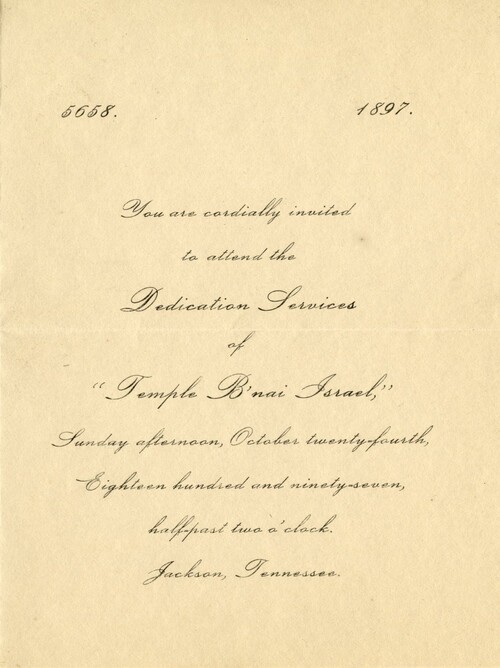 5658. 1897.
You are cordially invited
to attend the
Dedication Services
of
"Temple B'nai Israel,"
Sunday afternoon, October twenty-fourth,
Eighteen hundred and ninety-seven,
half-past two o'clock.
Jackson, Tennessee.